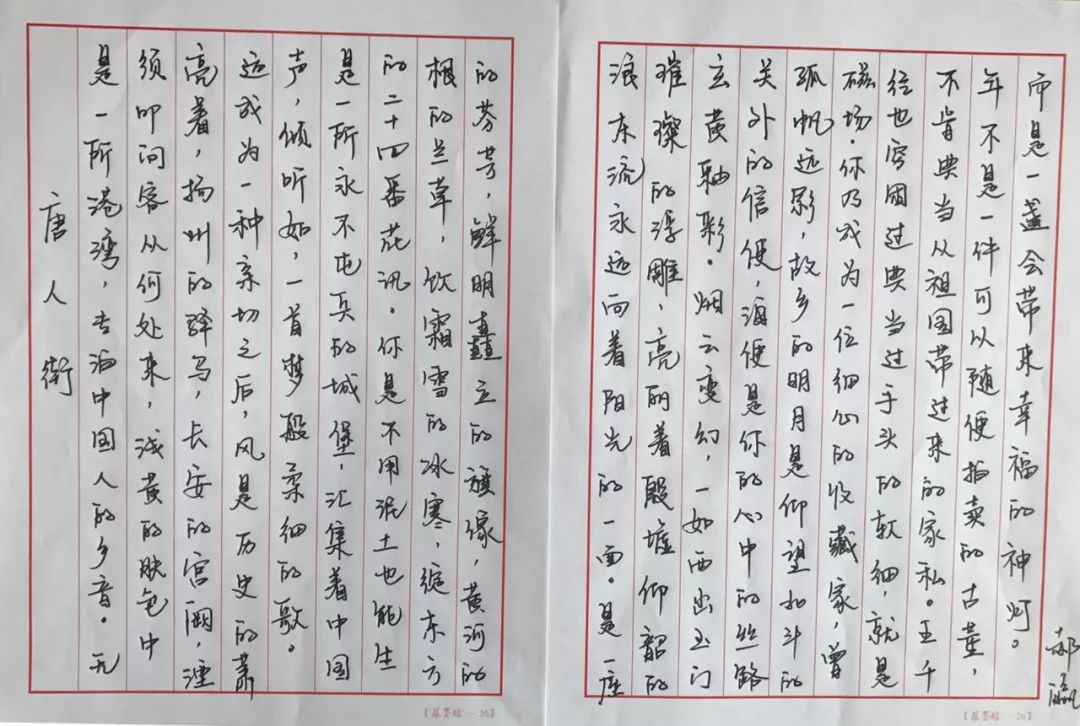 唐人街
是一所港湾，专泊中国人的乡音。无
须叩问客从何处来，浅黄的肤色中
亮着，扬州的驿马，长安的宫阙，湮
远成为一种亲切之后，风是历史的萧
声，倾听如，一首梦般柔细的歌。
是一所永不屯兵的城堡，汇集着中国
的二十四番花讯。你是不用泥土也能生
根的兰草，饮霜雪的冰寒，绽东方
的芬芳，鲜明矗立的旗缘，黄河的
浪东流永远向着阳光的一面。是一座
璀璨的浮雕，亮丽着殷墟仰韶的
玄黄釉彩。烟云变幻，一如西出玉门
关外的信使，酒便是你的心中的丝路
孤帆远影，故乡的明月是仰望北斗的
磁场。你乃成为一位细心的收藏家，曾
经也穷困过典当过手头的软细，就是
不肯典当从祖国带过来的家私。五千
年不是一件可以随便拍卖的古董，
而是一盏会带来幸福的神灯。
郝